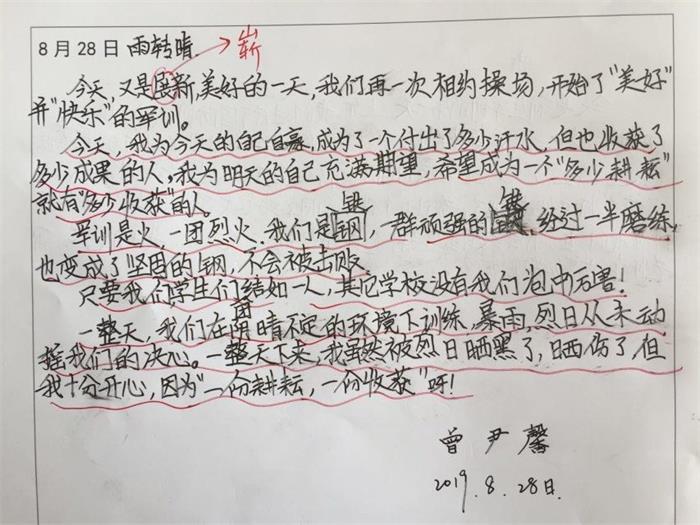 8月28日 雨转晴.
崭
今天,又是崭新,美好的一天,我们再一次相约操场,开始了"美好"
并"快乐"的军训。
今天,我为今天的自己自豪,成为了一个付出了多少汗水,但也收获了
多少成果的人,我为明天的自己充满期望,希望成为一个"多少耕耘"
就有"多少收获"的人。
铁 铁
军训是火,一团烈火.我们是钢,一群顽强的 经过一半磨练,
也变成了坚固的钢,不会被击败.
只要我们学生们团结如一人,其它学校没有我们 厉害!
一整天,我们在阴晴不定的环境下训练,暴雨,烈日从未动
摇我们的决心。一整天下来,我虽然被烈日晒黑了,晒伤了,但
我十分开心,因为"一份耕耘,一份收获"呀!
曾尹馨
2019.8.28日.